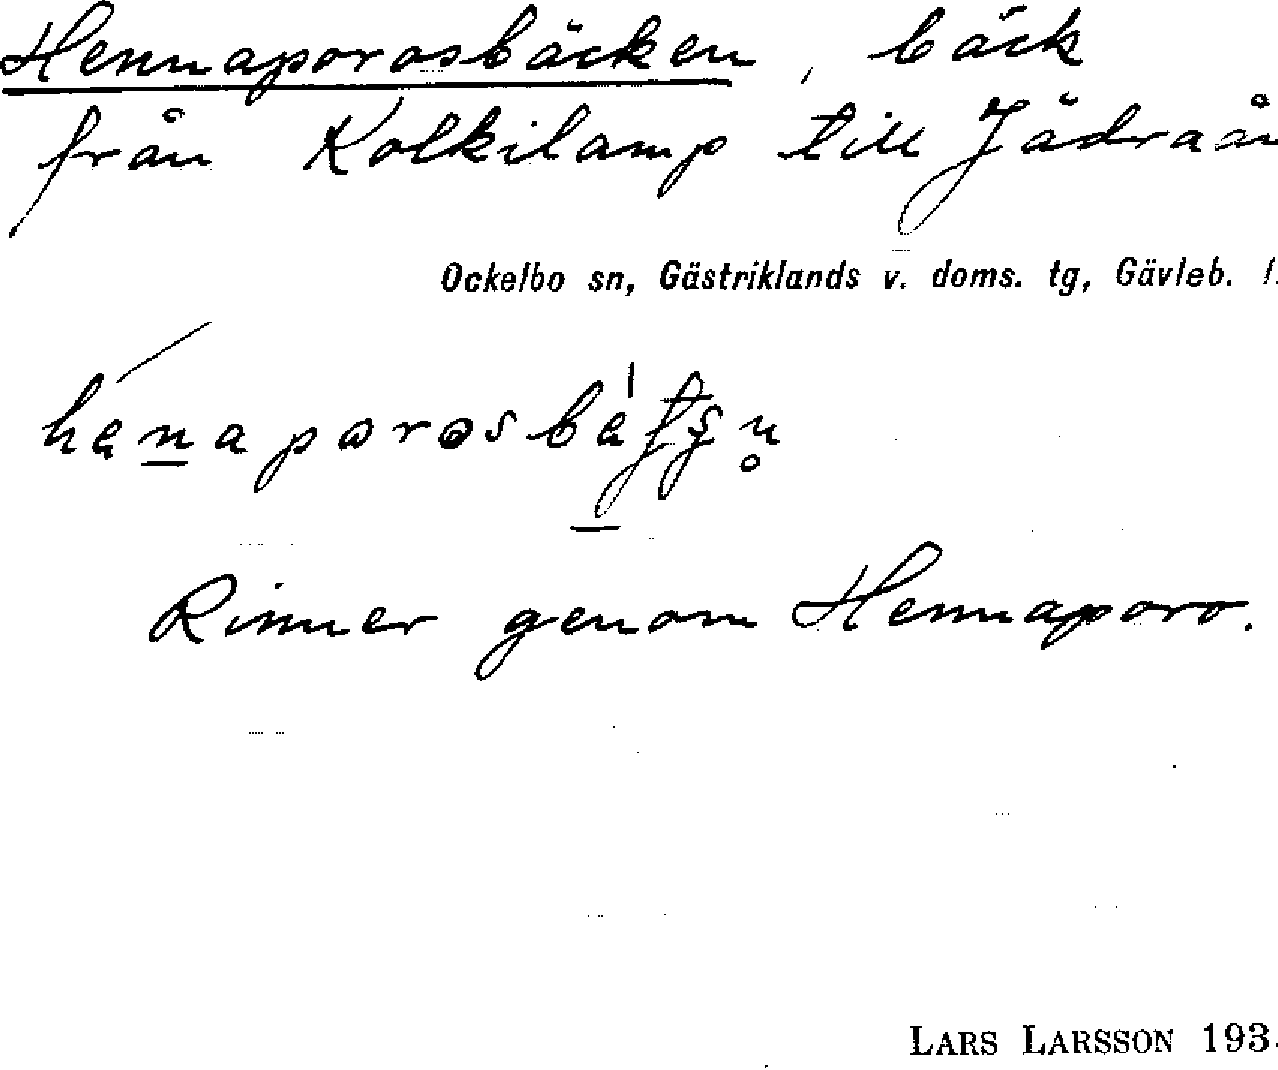 Hennaporosbäcken, bäck
från Kolkilamp till Jädraån
Ockelbo sn, Gästriklands v. doms. tg, Gävleb. l.
Rinner genom Hennaporo.
LARS LARSSON 193